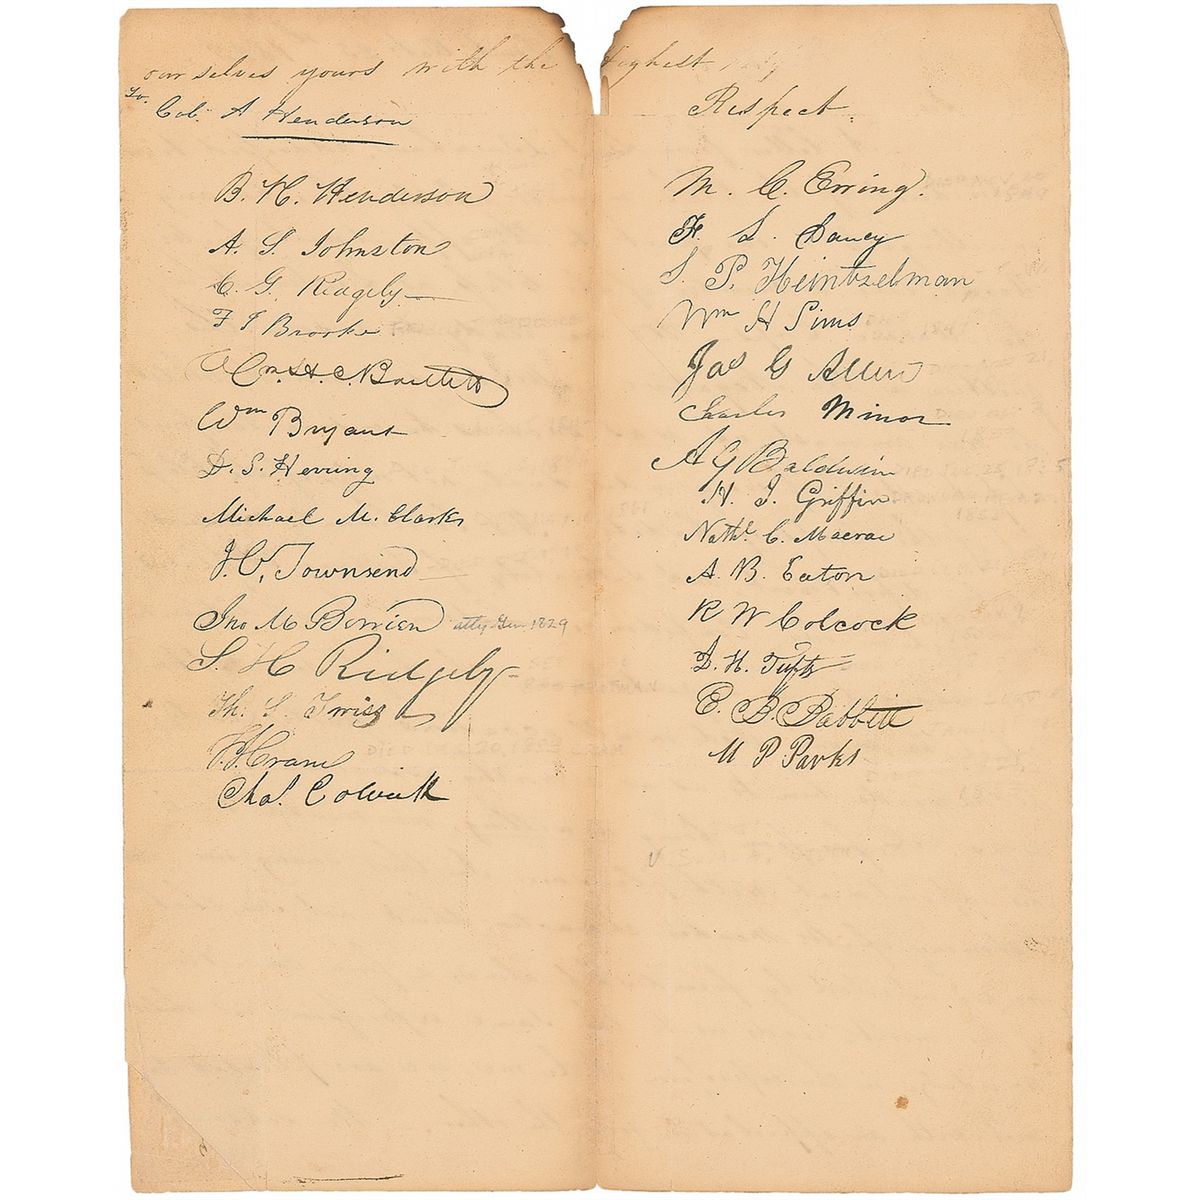 ourselves yours with the highest
Respect
To.
Col. A Henderson
B. H. Henderson
A. S. Johnston
C. G. Ridgely
F J Brooke
Wm. H. C. Bartlett
Wm Bryant
D. S. Herring
Michael M. Clark
J. C. Townsend
Jno M Berrien atty Gen 1829
S. H Ridgely
Th. S. Twiss
Crane
Chas.
M. C. Ewing.
F. L. Dancy
S. P. Heintzelman
Wm H Sims
Jas G Allen
Charles Minor
A G Baldwin
H. J. Griffin
Nathl. C. Macrae
A. B. Eaton
R W Colcock
D. H. Tufts
E. B. Babbitt
M P Parks